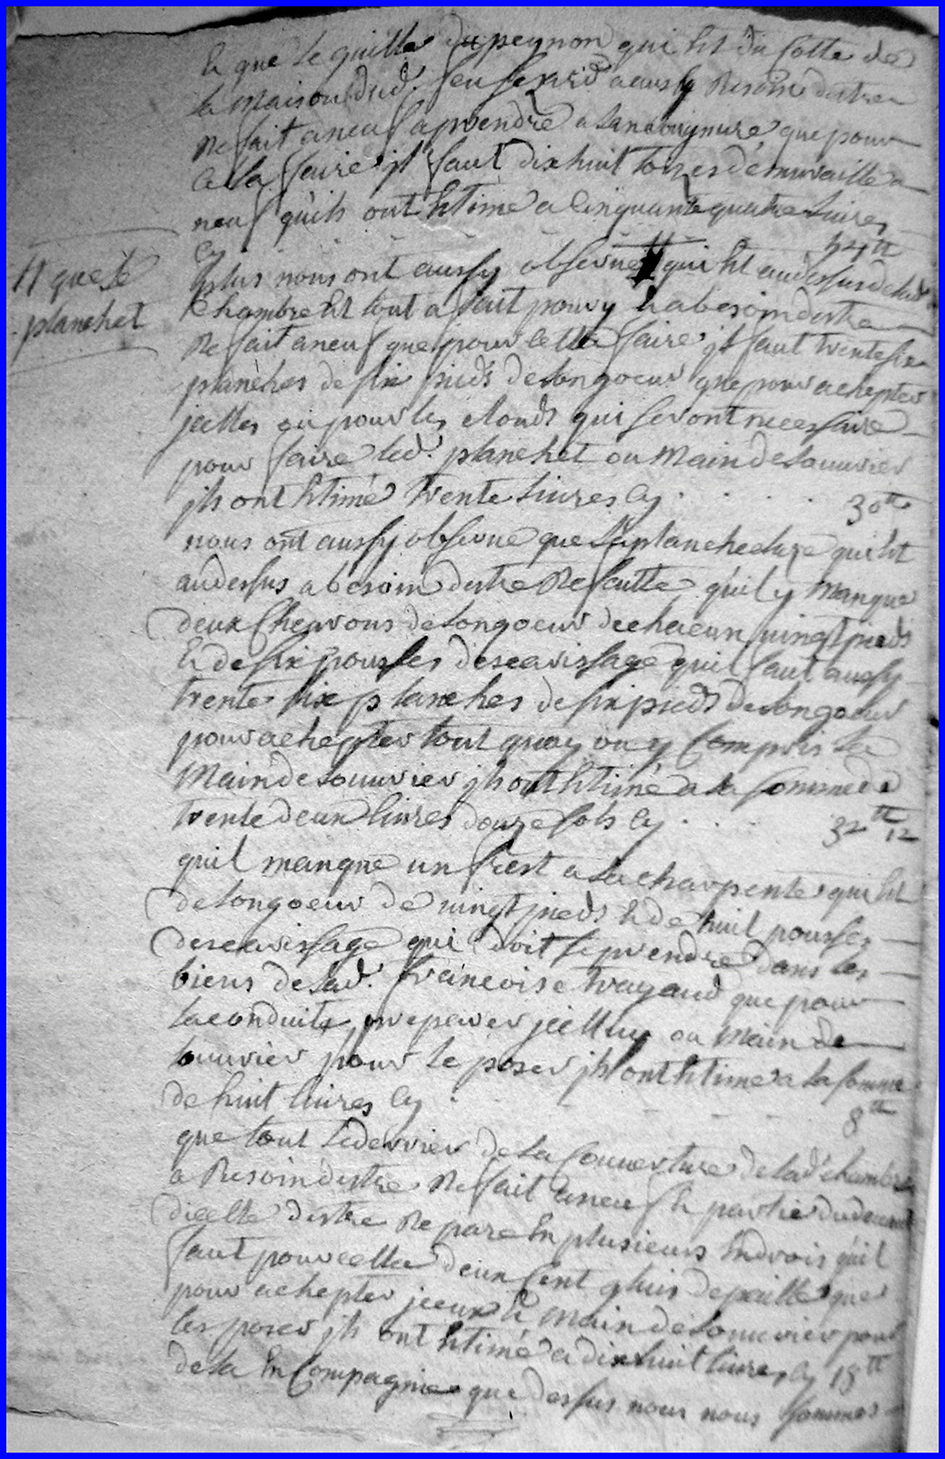 & que le quille du peynon qui Est du Cotte de
la maison dud. feu a aussy Besoin destre
Refait a neuf a prendre a que pour
Cella faire jl faut dix huit toizes de muraille a
neuf quils ont Estimé a Cinquante quatre Livres
Cy 54tt
Plus nous ont aussy observé # qui Est audessus de lad.
# que le
planchet
Chambre Est tout a fait pourry & a besoin destre
Refait a neuf que pour Cella faire jl faut trente six
planches de six pieds de Longoeur que pour achepter
jcelles ou pour les clouds qui seront necessaire
pour faire led. planchet ou Main de Louvrier
jls ont Estimé trente Livres Cy . . . . 30tt
nous ont aussy observé que La plancheture qui Est
audessus a besoin destre Refaitte quil y manque
deux Chevrons de Longoeur de chacun vingt pieds
& de six pousses descarissage quil faut aussy
trente six planches de six pieds de Longoeur
pour achepter tout quoy ou y Compris La
Main de Louvrier jls ont Estimé a la somme de
trente deux livres douze sols Cy . . . 32tt 12
quil manque un frest a La charpente qui Est
de Longoeur de vingt pieds & de huit pousses
descarissage qui doit se prendre dans les
biens de lad. francoise trayaud que pour
La conduite preparer jcelluy ou Main de
Louvrier pour le poser jls ont Estimé a la somme
de huit livres Cy . . . . 8tt
que tout Le derrier de La Couverture de lad. chambre
a Besoin destre Refait a neuf & partie du devant
dicelle destre Reparé En plusieurs Endrois quil
faut pour cella deux Cent gluis de paille que
pour achepter jceux & Main de Louvrier pour
les poser jls ont Estimé a dix huit livres Cy 18tt
de la En Compagnie que dessus nous nous sommes